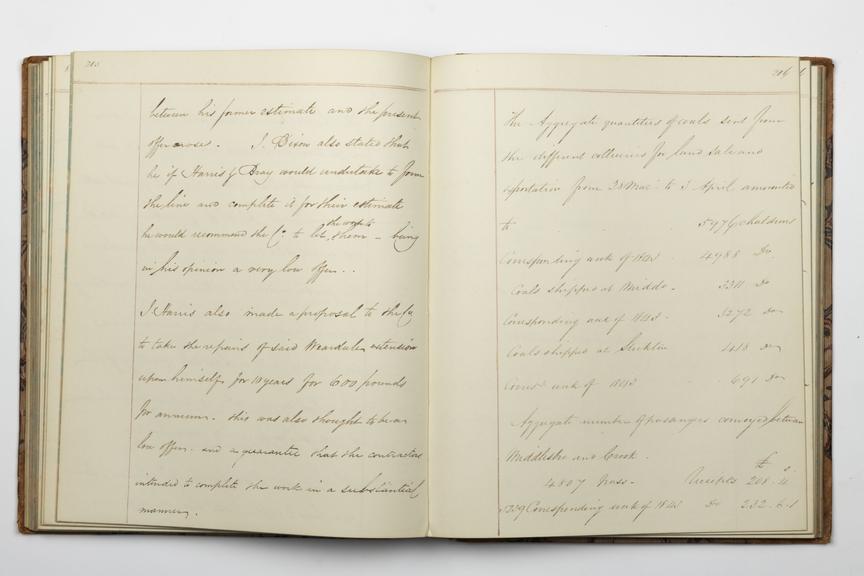 215
between his former estimate and the present
offer arose. J. Dixon also stated that
he if Harris & Bray would undertake to form
the line and complete it for their estimate
he would recommend the Co. to let the work to them - being
in his opinion a very low offer..
J Harris also made a proposal to the Co
to take the repairs of said Weardale extension
upon himself for 10 years for 600 pounds
per annum. this was also thought to be a
low offer. and a guarantee that the contractors
intended to complete the work in a substantial
manner.
216
The Aggregate quantities of coals sent from
the different collieries for land sale and
exportation from 28 Mar. to 3 April amounted
to 5976 chaldrons
Corresponding week of 1843 4988 Do
Coals shipped at Middo - 3311 Do
Corresponding week of 1843 - 3272 Do
Coals shipped at Stockton 418 Do
Corresd week of 1843 691 Do
Aggregate number of passengers conveyed between
Middlesbro and Crook.
£ s
4807 Pass - Receipts 208. 4
Corresponding week of 1843 Do 232. 6. 1